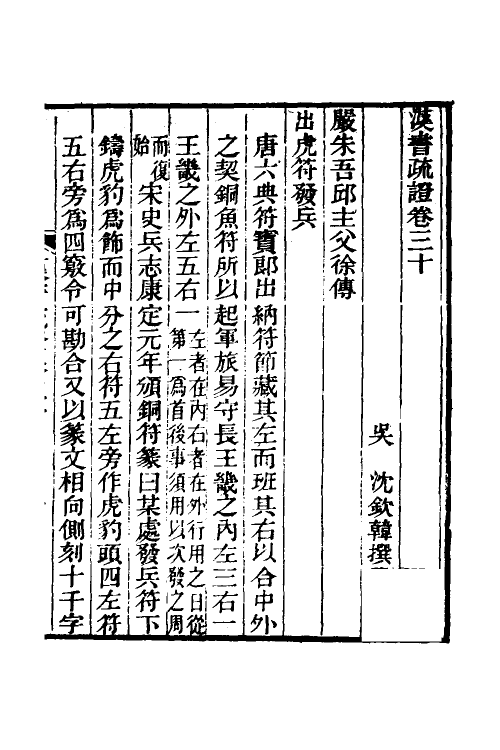 漢書疏證卷三十
吳 沈欽韓撰
嚴朱吾邱主父徐傳
出虎符發兵
唐六典符寶郎出納符節藏其左而班其右以合中外
之契銅魚符所以起軍旅易守長王畿之內左三右一
王畿之外左五右一左者在內右者在外行用之日從
第一爲首後事須用以次發之周
而復
始宋史兵志康定元年頒銅符篆曰某處發兵符下
鑄虎豹爲飾而中分之右符五左旁作虎豹頭四左符
五右旁爲四竅令可勘合又以篆文相向側刻十千字